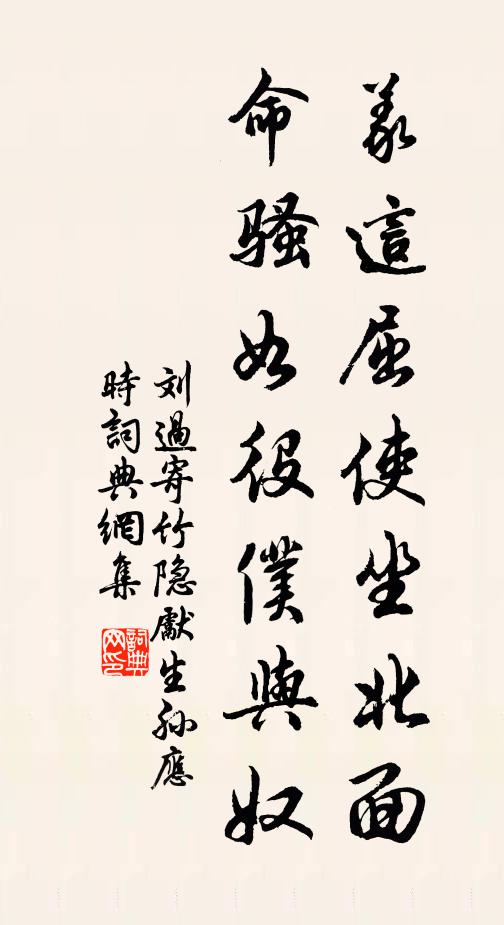 義這屈使坐北面
命騷如役僕與奴
刘過寄竹隐獻生孫應
時詞典網集
詞典网印